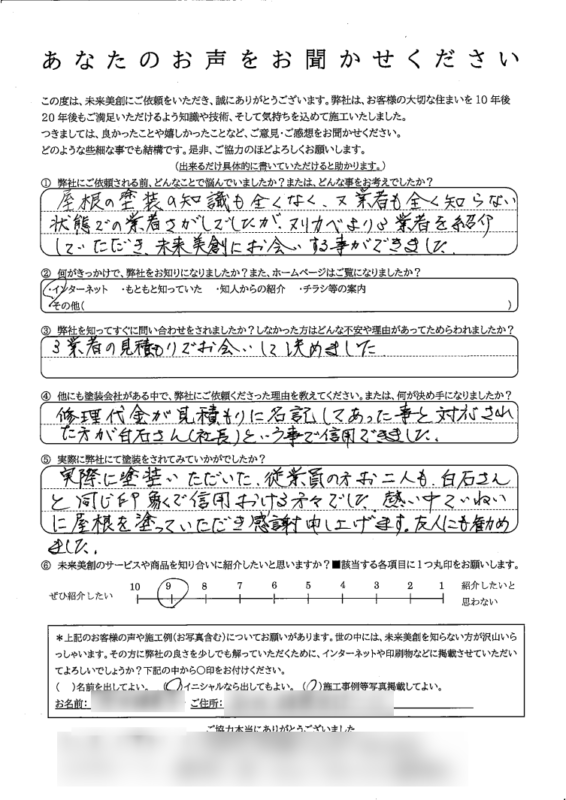 あなたのお声をお聞かせください
この度は、未来美創にご依頼をいただき、誠にありがとうございます。弊社は、お客様の大切な住まいを10年後
20年後もご満足いただけるよう知識や技術、そして気持ちを込めて施工いたしました。
つきましては、良かったことや嬉しかったことなど、ご意見・ご感想をお聞かせください。
どのような些細な事でも結構です。是非、ご協力のほどよろしくお願いします。
(出来るだけ具体的に書いていただけると助かります。)
① 弊社にご依頼される前、どんなことで悩んでいましたか？または、どんな事をお考えでしたか？
屋根の塗装の知識も全くなく、又業者も全く知らない
状態での業者さがしでしたが、ヌリカベより3業者を紹介
していただき、未来美創にお会いする事ができました。
② 何がきっかけで、弊社をお知りになりましたか？また、ホームページはご覧になりましたか？
・インターネット ・もともと知っていた ・知人からの紹介 ・チラシ等の案内
・その他( )
③ 弊社を知ってすぐに問い合わせをされましたか？しなかった方はどんな不安や理由があってためらわれましたか？
3業者の見積もりでお会いして決めました
④ 他にも塗装会社がある中で、弊社にご依頼くださった理由を教えてください。または、何が決め手になりましたか？
修理代金が見積もりに名記してあった事と対応され
た方が白石さん(社長)という事で信用できました。
⑤ 実際に弊社にて塗装をされてみていかがでしたか？
実際に塗装いただいた、従業員の方お二人も、白石さん
と同じ印象で信用おける方々でした。熱い中ていねい
に屋根を塗っていただき感謝申し上げます。友人にも勧め
ました。
⑥ 未来美創のサービスや商品を知り合いに紹介したいと思いますか？■該当する各項目に1つ丸印をお願いします。
ぜひ紹介したい 10 9 8 7 6 5 4 3 2 1 紹介したいと
思わない
＊上記のお客様の声や施工例(お写真含む)についてお願いがあります。世の中には、未来美創を知らない方が沢山いら
っしゃいます。その方に弊社の良さを少しでも解っていただくために、インターネットや印刷物などに掲載させていただい
てよろしいでしょうか？下記の中から○印をお付けください。
( )名前を出してよい。 (○)イニシャルなら出してもよい。 (○)施工事例等写真掲載してよい。
お名前： ご住所：
ご協力本当にありがとうございました